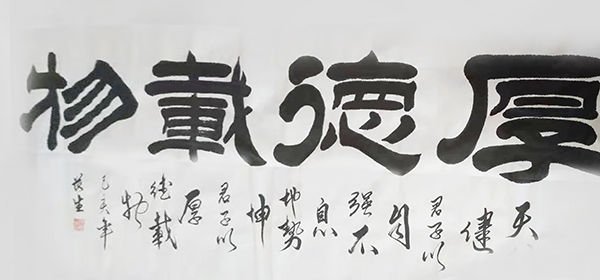 厚德載物
天
健
君子以
自
强不
息
地勢
坤
君子以
厚
德載
物
己亥年